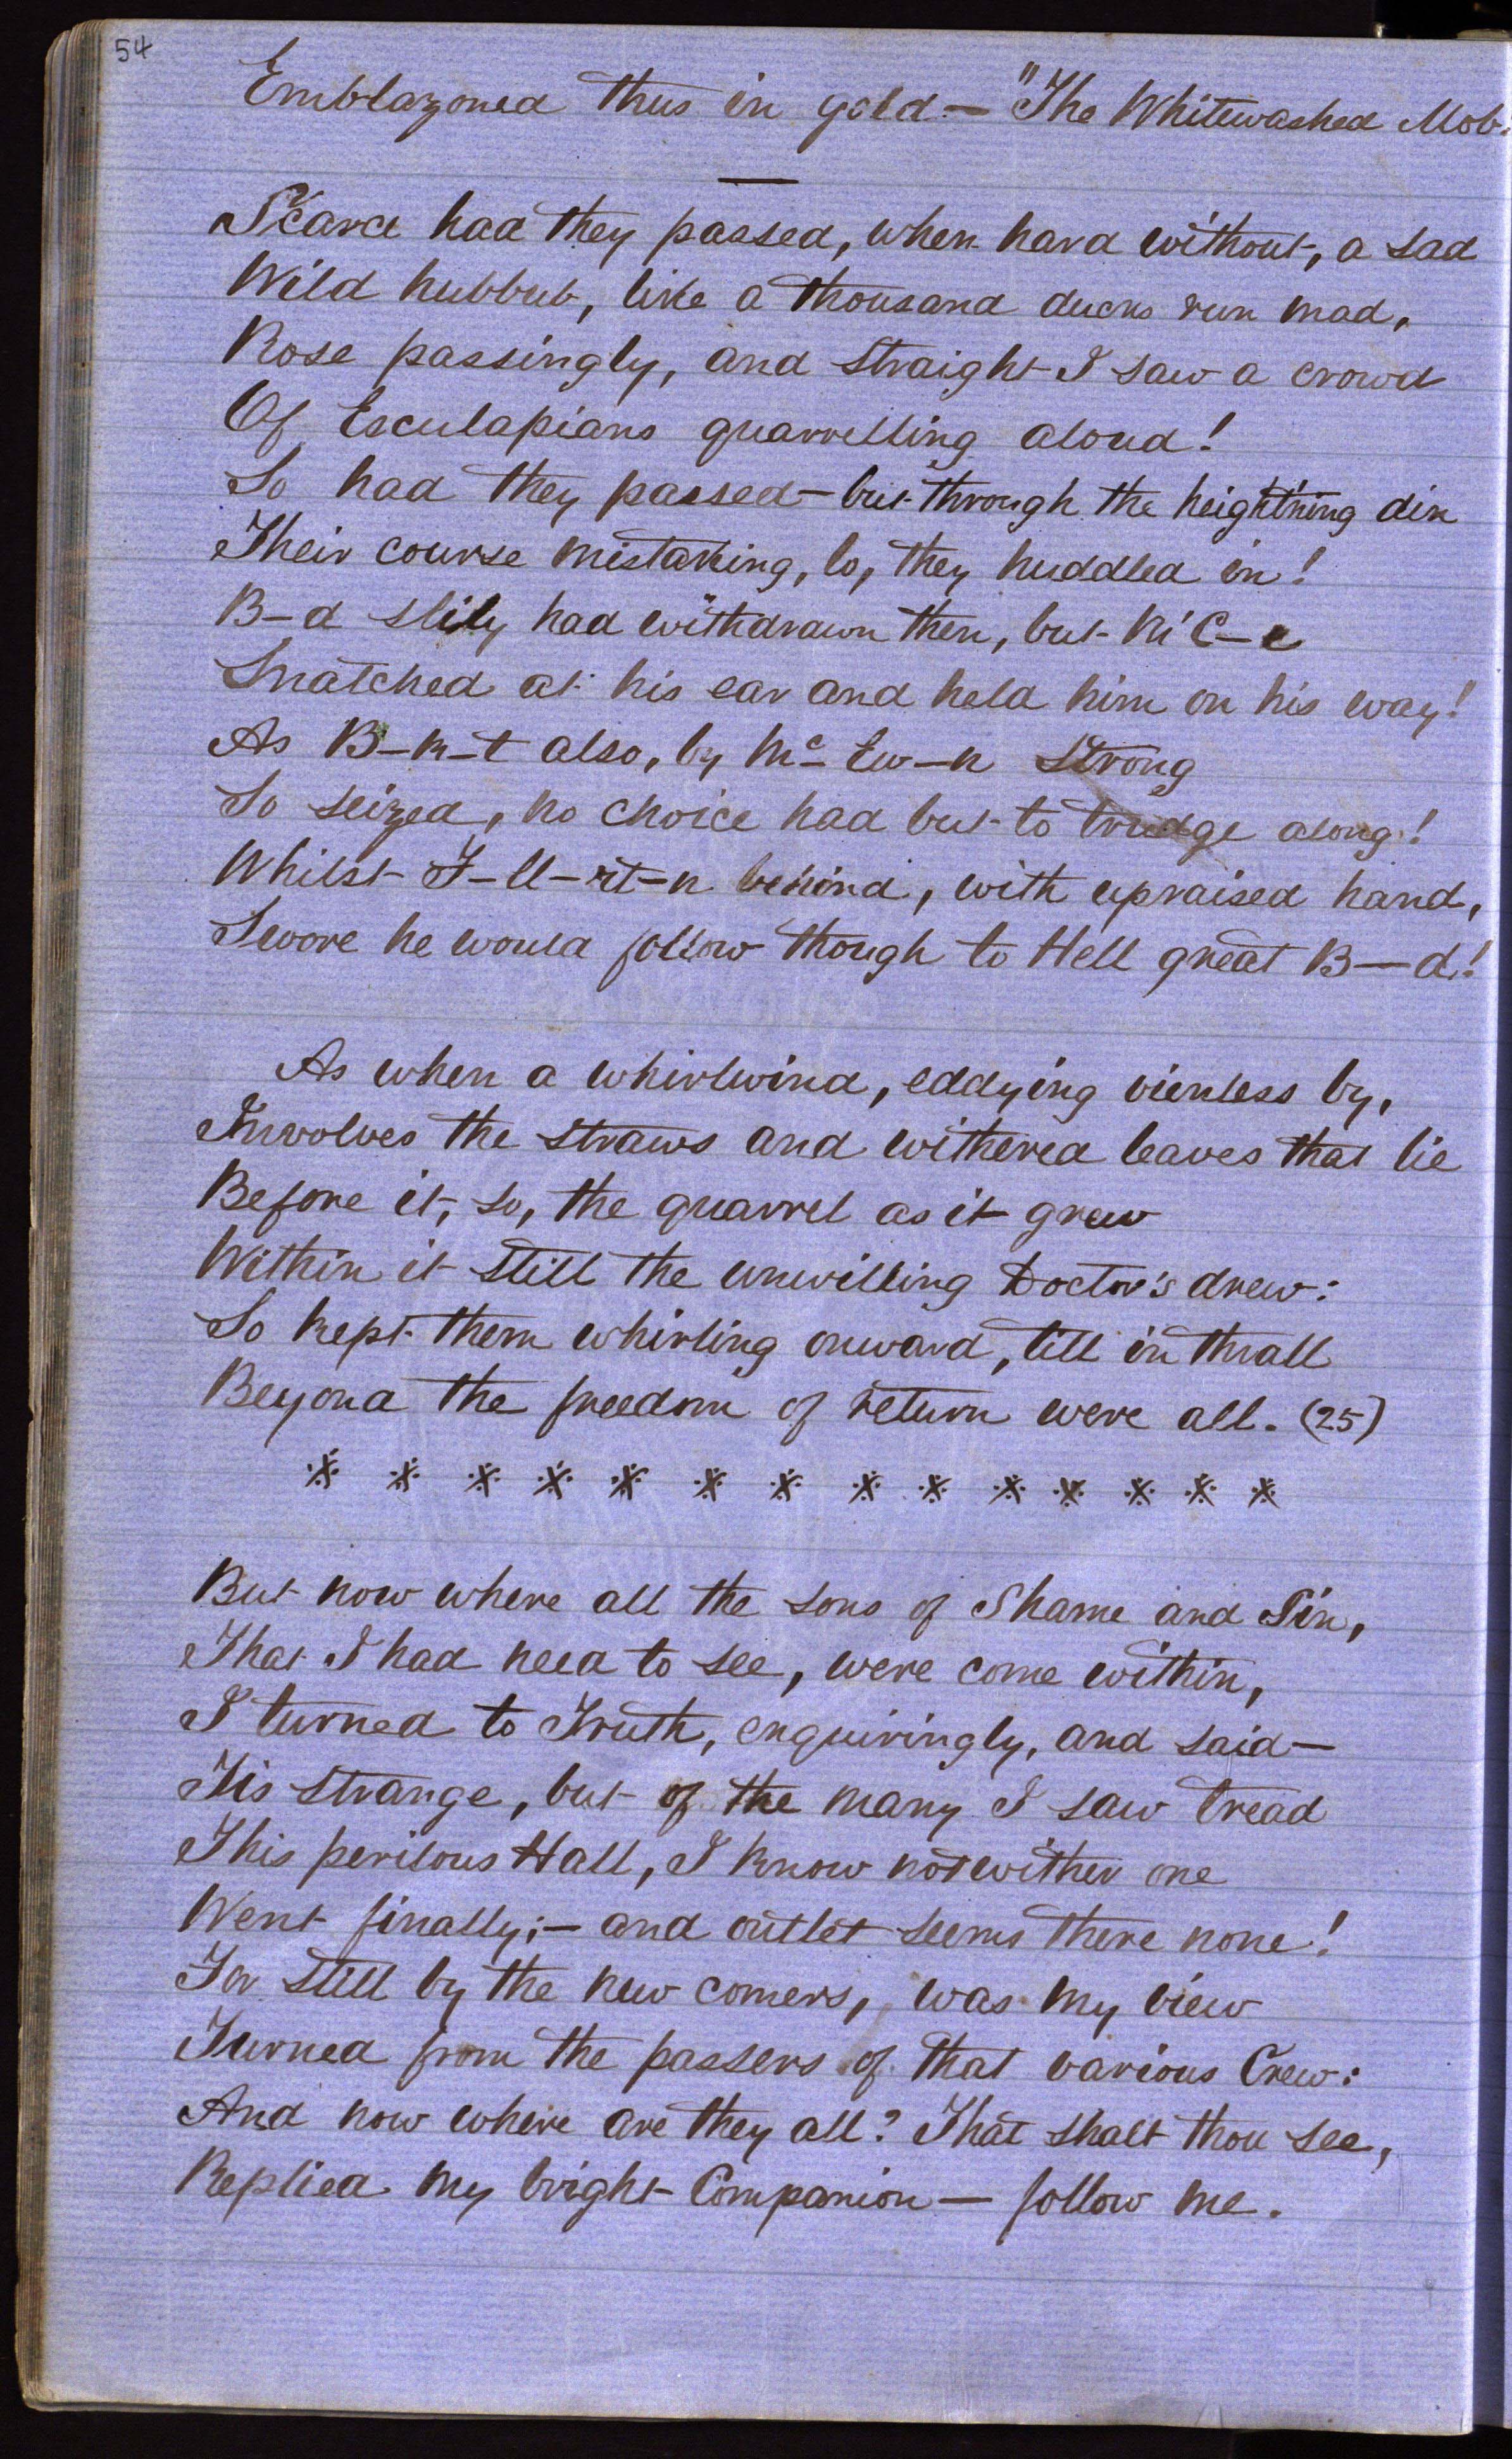 54
Emblazoned thus in gold— "The Whitewashed Mob.
Scarce had they passed, when hard without, a sad
Wild hubbub, like a thousand ducks run mad,
Rose passingly, and straight I saw a crowd
Of Esculapians quarrelling aloud!
So had they passed—but through the height'ning din
Their course mistaking, lo, they huddled in!
B—d slily had withdrawn then, but M'C—e
Snatched at his ear and held him on his way!
As B—n—t also, by Mc Ew—n strong
So seized, no choice had but to trudge along!
Whilst F—ll—rt—n behind, with upraised hand,
Swore he would follow though to Hell great B—d!
As when a whirlwind, eddying viewless by,
Involves the straws and withered leaves that lie
Before it, so, the quarrel as it grew
Within it still the unwilling Doctor's drew:
So kept them whirling onward, till in thrall
Beyond the freedom of return were all. (25)
※ ※ ※ ※ ※ ※ ※ ※ ※ ※ ※ ※ ※ ※
But now where all the sons of Shame and Sin,
That I had need to see, were come within,
I turned to Truth, enquiringly, and said—
Tis strange, but of the many I saw tread
This perilous Hall, I know not wither one
Went finally;— and outlet seems there none!
For still by the new comers, was my view
Turned from the passers of that various Crew:
And now where are they all? That shalt thou see,
Replied my bright Companion— follow me.